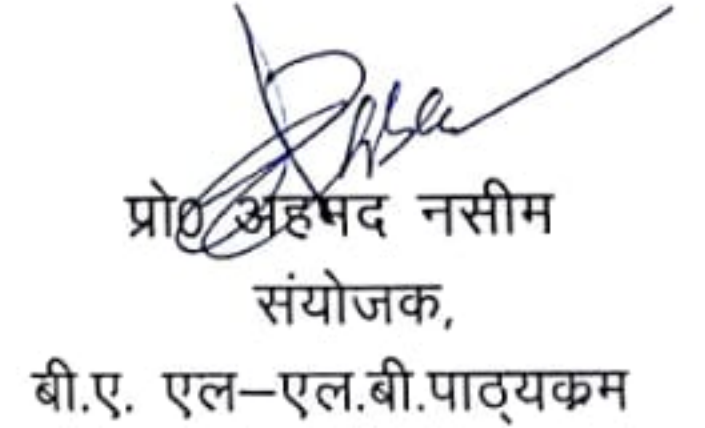 प्रो0 अहमद नसीम
संयोजक,
बी.ए. एल–एल.बी.पाठ्यक्रम